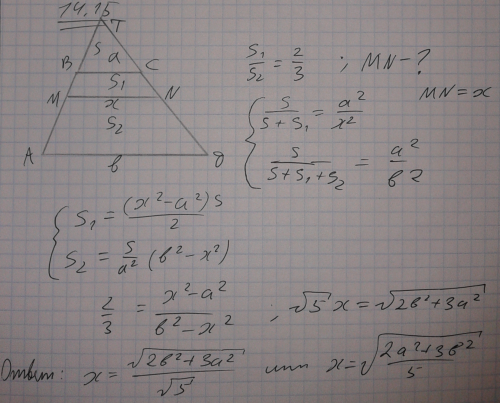 14.15
T
S a
B C
S₁
M x N
S₂
A в D
S₁/S₂ = 2/3 ; MN - ?
MN = x
{ S/(S+S₁) = a²/x²
S/(S+S₁+S₂) = a²/в²
{ S₁ = (x²-a²)S/2
S₂ = S/a² (в²-x²)
2/3 = (x²-a²)/(в²-x²) ; √5 x = √(2в²+3a²)
Ответ: x = √(2в²+3a²)/√5 или x = √((2a²+3в²)/5)